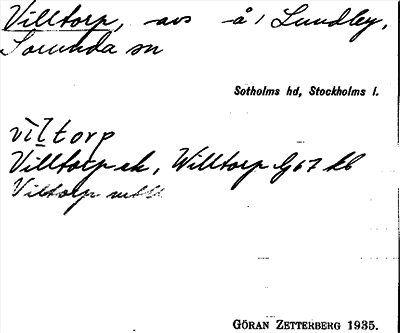 Villtorp, avs å Lundby,
Sorunda sn
Sotholms hd, Stockholms l.
viltorp
Villtorp ek, Willtorp Gb7 kb
Viltorp
GÖRAN ZETTERBERG 1935.